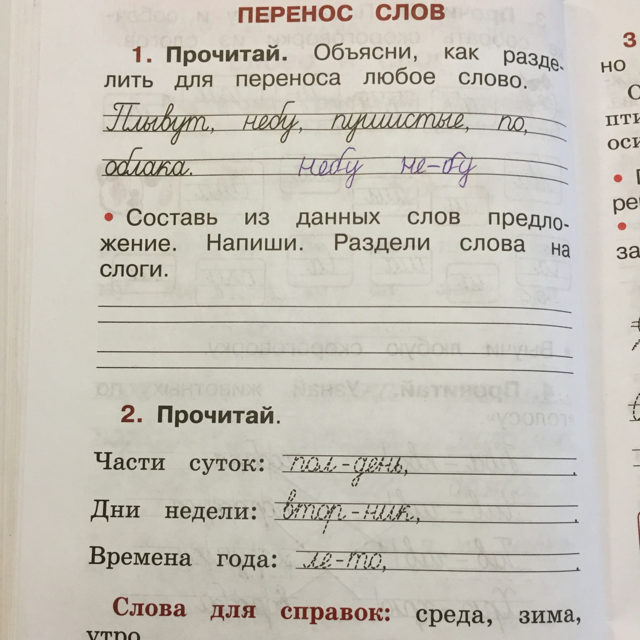 ПЕРЕНОС СЛОВ
1. Прочитай. Объясни, как разде-
лить для переноса любое слово.
Плывут, небу, пушистые, по,
облака. небу не-бу
• Составь из данных слов предло-
жение. Напиши. Раздели слова на
слоги.
2. Прочитай.
Части суток: пол-день,
Дни недели: втор-ник,
Времена года: ле-то,
Слова для справок: среда, зима,
утро
З
но
С
пти
оси
•
ре
•
за